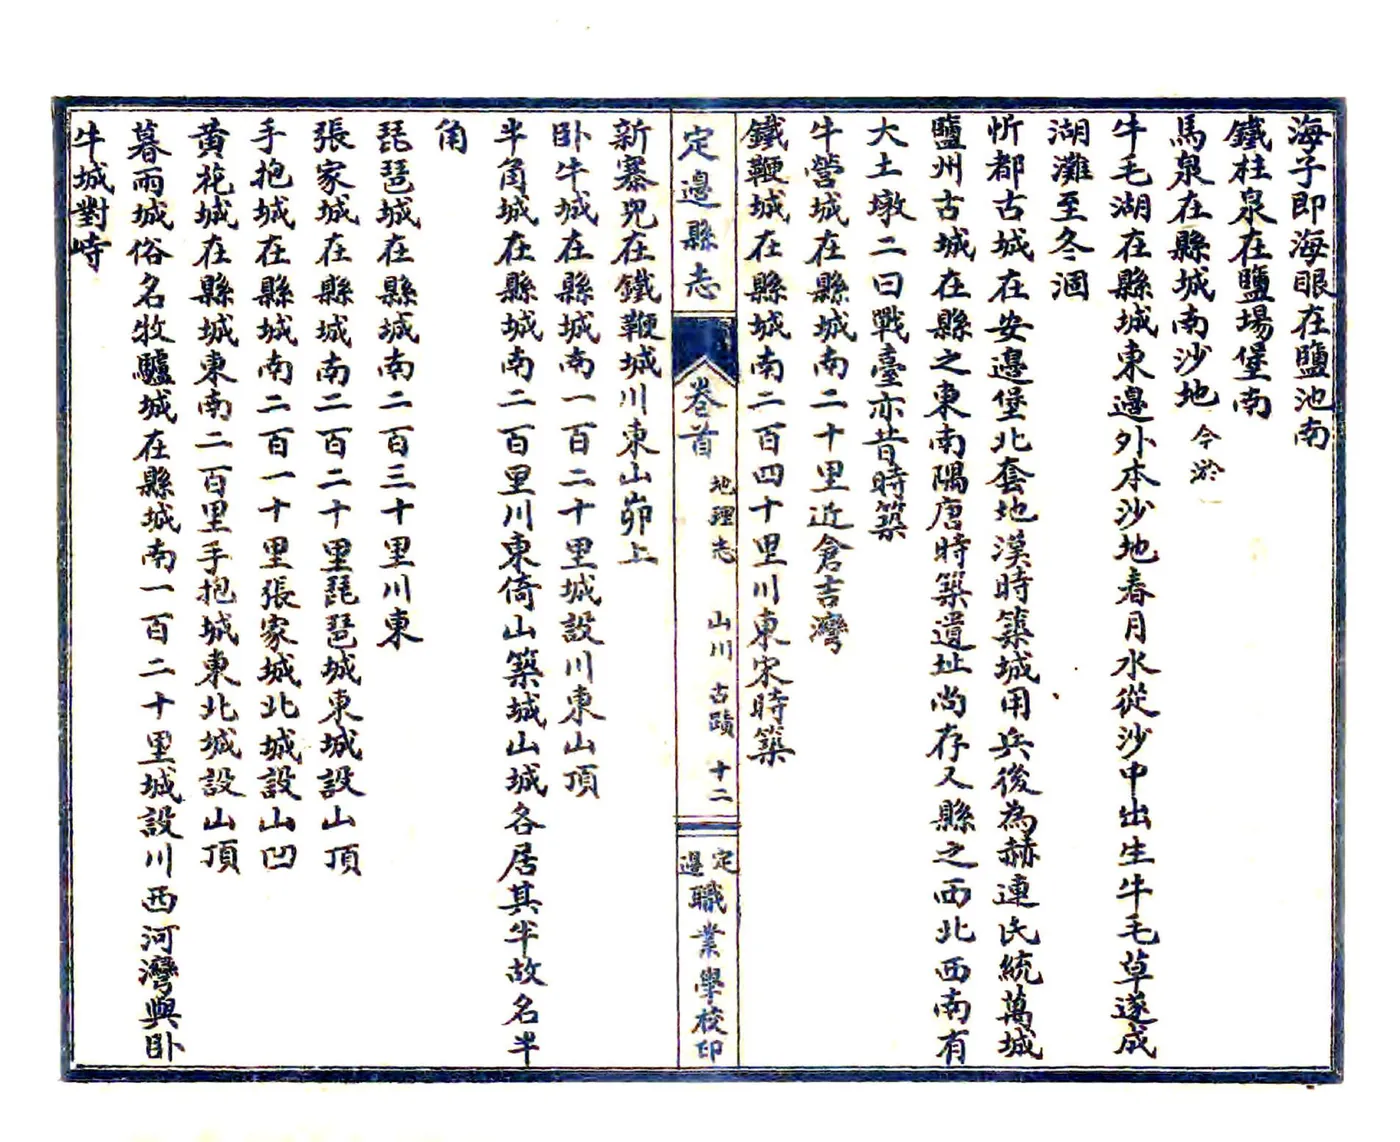 海子即海眼在鹽池南
鐵柱泉在鹽場堡南
馬泉在縣城南沙地今淤
牛毛湖在縣城東邊外本沙地春月水從沙中出生牛毛草遂成
湖灘至冬涸
忻都古城在安邊堡北套地漢時築城用兵後為赫連氏統萬城
鹽州古城在縣之東南隅唐時築遺址尚存又縣之西北西南有
大土墩二曰戰臺亦昔時築
牛營城在縣城南二十里近倉吉灣
鐵鞭城在縣城南二百四十里川東宋時築
定邊縣志
卷首
地理志 山川 古蹟 十二
定邊職業學校印
新寨兒在鐵鞭城川東山峁上
卧牛城在縣城南一百二十里城設川東山頂
半角城在縣城南二百里川東倚山築城山城各居其半故名半
角
琵琶城在縣城南二百三十里川東
張家城在縣城南二百二十里琵琶城東城設山頂
手抱城在縣城南二百一十里張家城北城設山凹
黃花城在縣城東南二百里手抱城東北城設山頂
暮雨城俗名牧驢城在縣城南一百二十里城設川西河灣與卧
牛城對峙